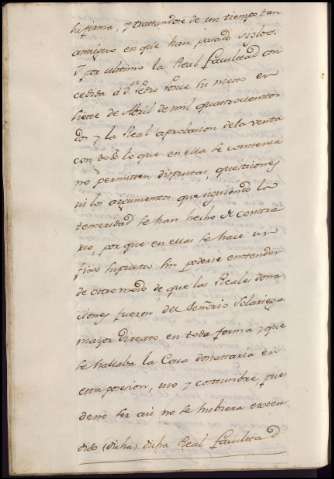 y tratandose de un tiempo tan
antiguo en que han pasado siglos.
Y por ultimo la Real Facultad con
cedida à d.n Pedro Ponce su nieto en
siete de Abril de mil quatrocientos
y la Real aprobacion de la venta
con todo lo que en ella se contiene
no permiten disputas, questiones
ni los argumentos que siguiendo la
temeridad se han hecho de contra
rio, por que en ellas se hace un
supuesto sin poderse entender
de otro modo de que las Reales dona
ciones fueron del Señorio Solariego
mayor directo en toda forma y que
se hallaba la Casa donataria en
esta posesion, uso y costumbre, pue
de no ser asi no se hubiera exten
dido (dicha) dicha Real Facultad